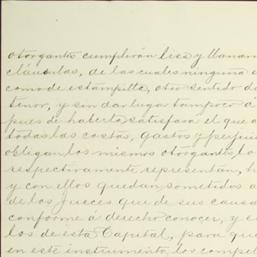 otorgantes cumplirán lisa y llanam
cláusulas, de las cuales ninguna e
como de estampilla, otro sentido di
tenor, y sin dar lugar tampoco á
pues de haberla satisfará el que a
todas las costas, gastos y perjuic
obligan los mismos otorgantes, lo
respectivamente representan, h
y con ellos quedan sometidos a
de los Jueces que de sus causa
conforme á derecho conocer, y e
los de esta Capital, para que
en este instrumento, los compel